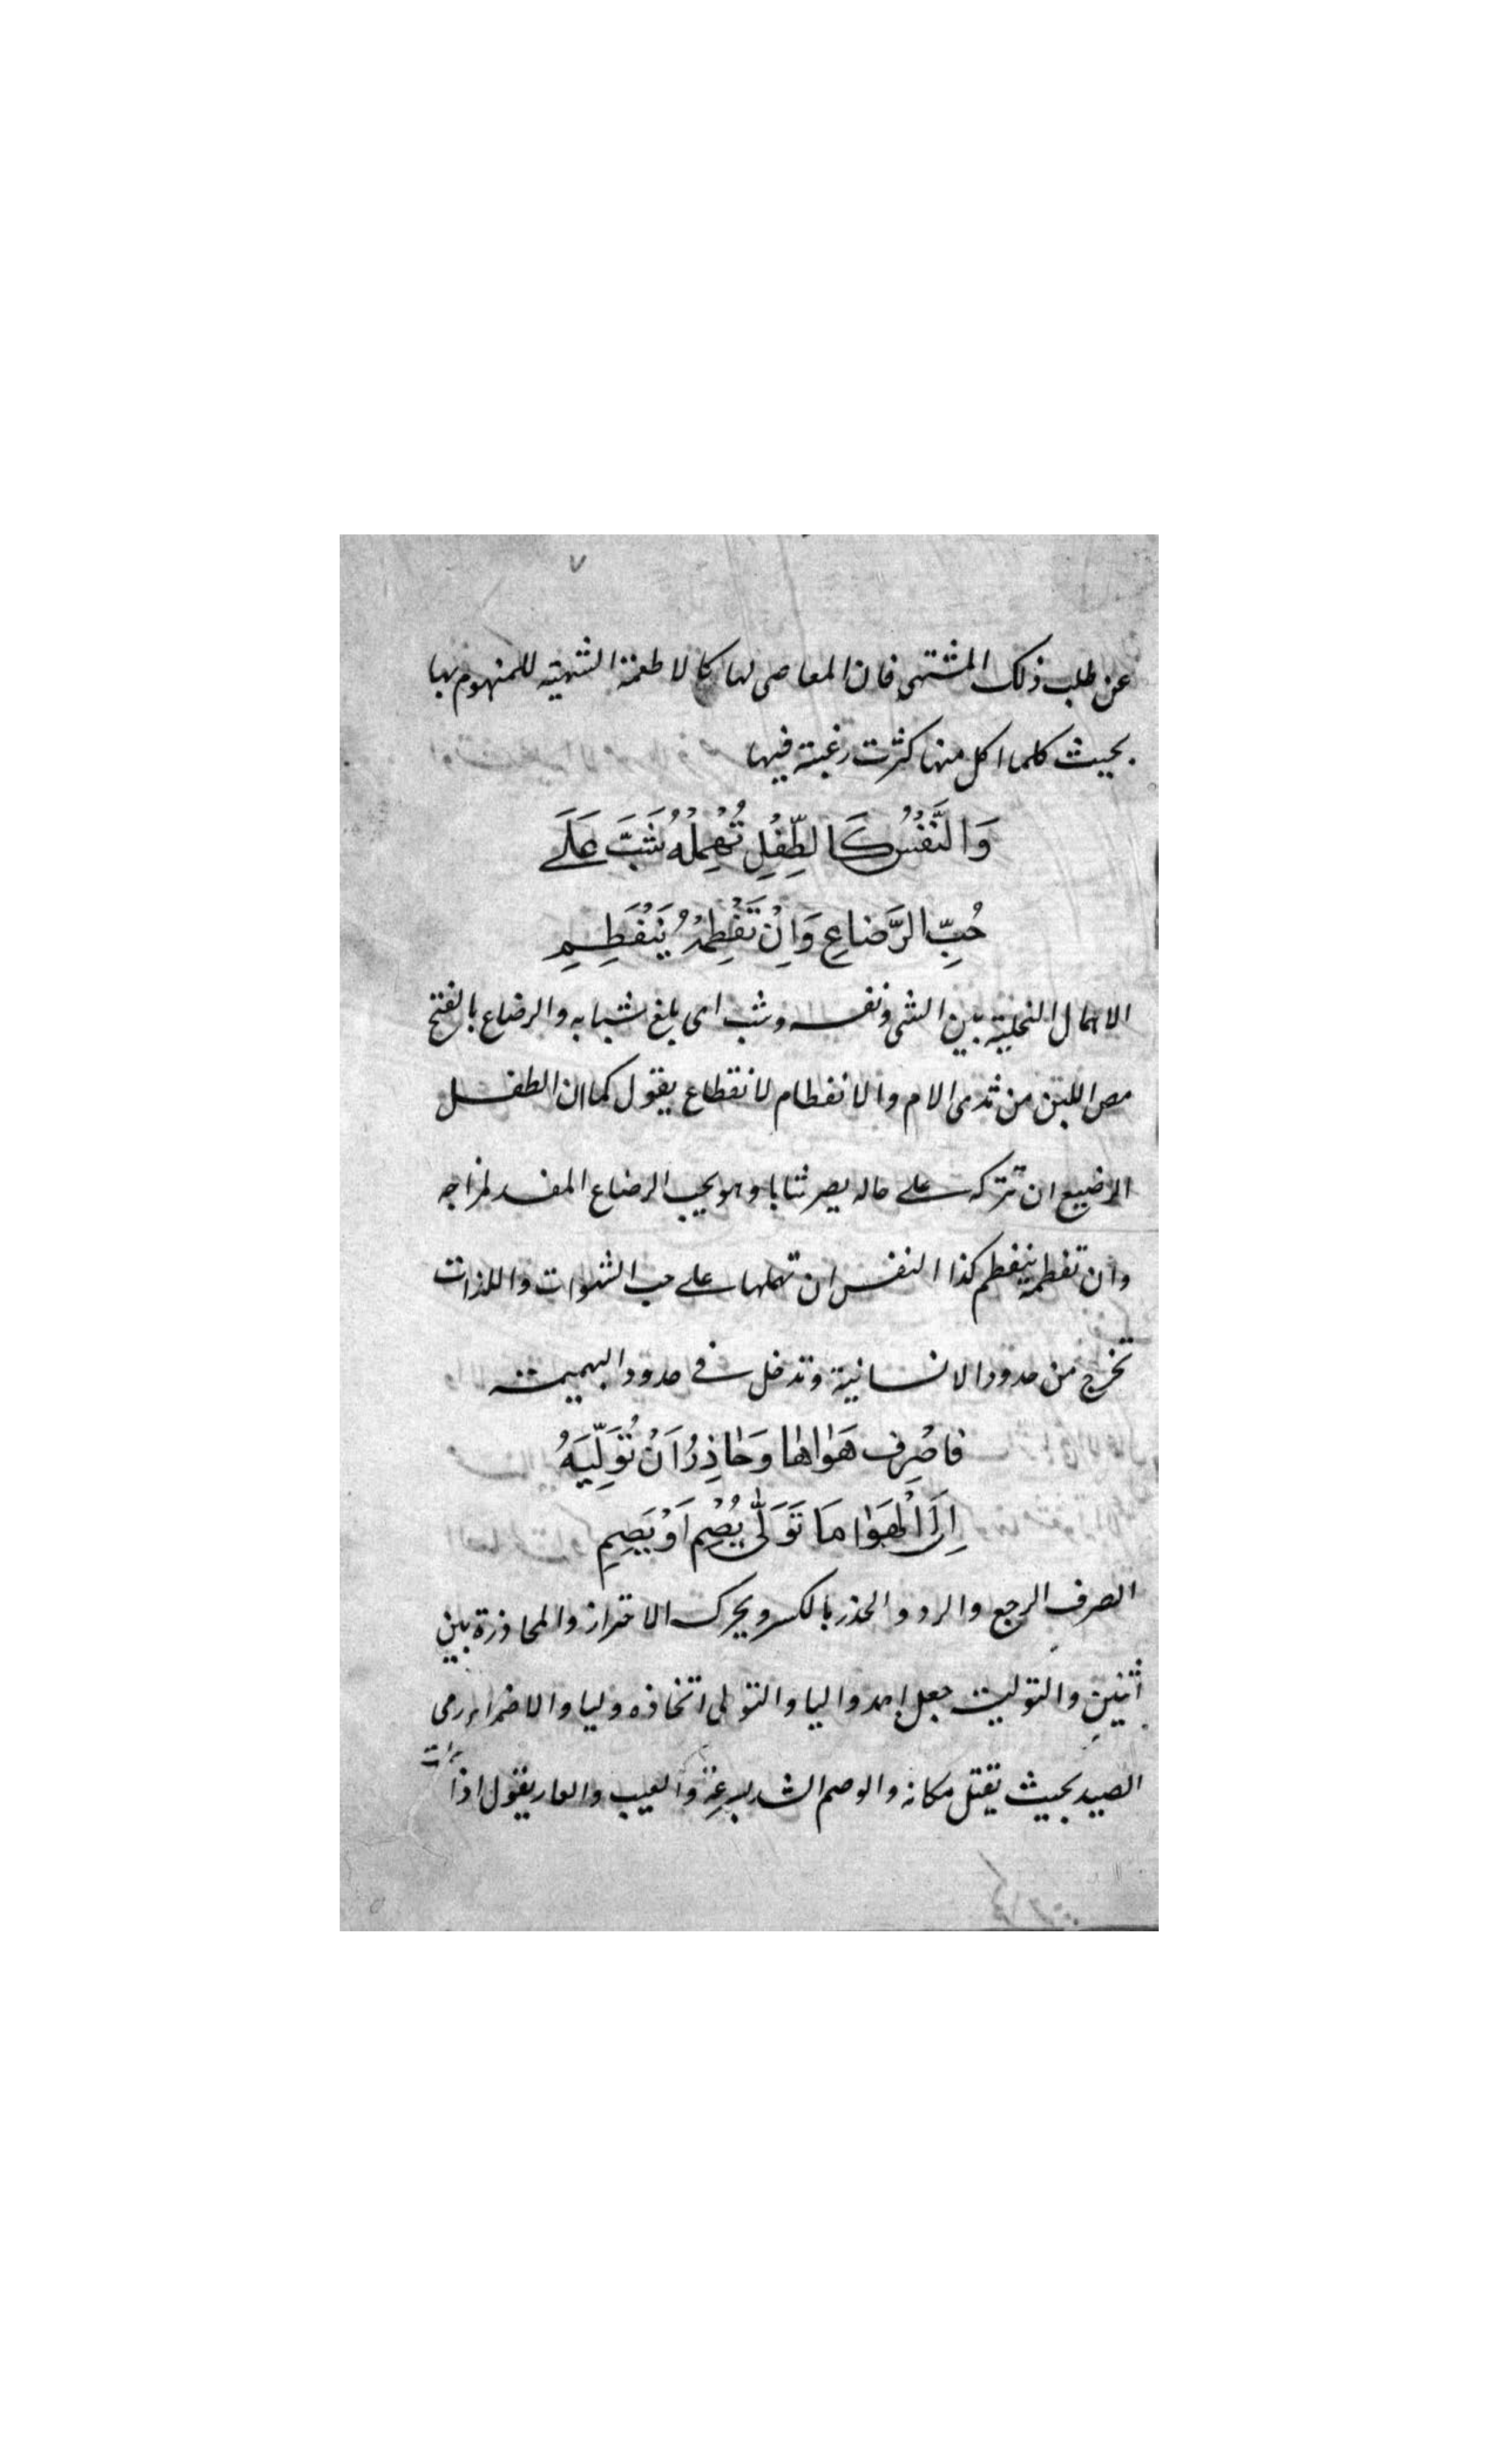 ٧
عن طلب ذلك المشتهى فان المعاصى لها كالاطعمة الشهية للمنهوم بها
بحيث كلما اكل منها كثرت رغبته فيها
وَالنَّفْسُ كَالطِّفْلِ تُهْمِلْهُ شَبَّ عَلَى
حُبِّ الرَّضَاعِ وَاِنْ تَفْطِمْهُ يَنْفَطِمِ
الاهمال التخلية بين الشى ونفسه وشب اى بلغ شبابه والرضاع بالفتح
مص اللبن من ثدى الام والانفطام لانقطاع يقول كما ان الطفل
الرضيع ان تتركه على حاله يصر شابا وهو يحب الرضاع المفسد لمزاجه
وان تفطمه ينفطم كذا النفس ان تهملها على حب الشهوات واللذات
تخرج من حدود الانسانية وتدخل فى حدود البهيمية
فاصْرِف هَوٰاهٰا وَحٰاذِرْ اَنْ تُوَلِّيَهُ
اِنَّ الْهَوٰا مَا تَوَلّٰى يُصْمِ اَوْ يَصِمِ
الصرف الرجع والرد والحذر بالكسر ويحرك الاحتراز والمحاذرة بين
اثنين والتولية جعل احد واليا والتولى اتخاذه وليا والاضماء رمى
الصيد بحيث يقتل مكانه والوصم الشد بسرعة والعيب والعار يقول اذا